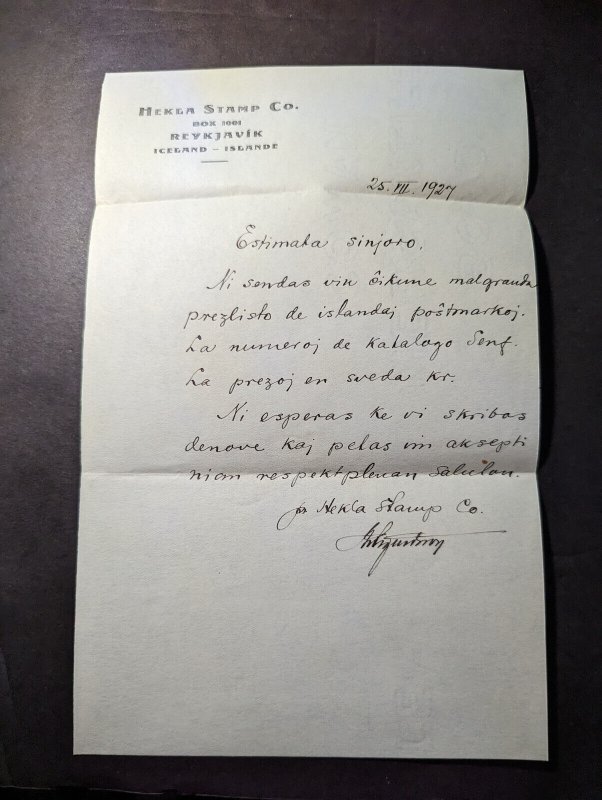 HEKLA STAMP CO.
BOX 1001
REYKJAVÍK
ICELAND – ISLANDE
25. VII. 1927
Estimata sinjoro.
Ni sendas vin ĉikune malgranda
prezlisto de islandaj poŝtmarkoj.
La numeroj de katalogo Senf.
La prezoj en sveda kr.
Ni esperas ke vi skribas
denove kaj petas vin aksepti
nian respektplenan saluton.
Hekla Stamp Co.